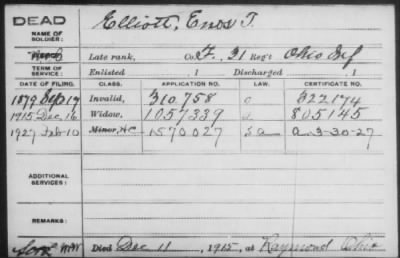 DEAD
NAME OF SOLDIER: Elliott, Enos T.
TERM OF SERVICE: Late rank, Co. F, 21 Reg't Ohio Inf
Enlisted , 1 Discharged , 1
DATE OF FILING. CLASS. APPLICATION NO. LAW. CERTIFICATE NO.
1879 Sep 19 Invalid, 310.758 322174
1915 Dec 16 Widow, 1057339 805145
1927 Feb-10 Minor, HC 1570027 a 3-30-27
ADDITIONAL SERVICES:
REMARKS:
Died Dec 11, 1915, at Raymond Ohio